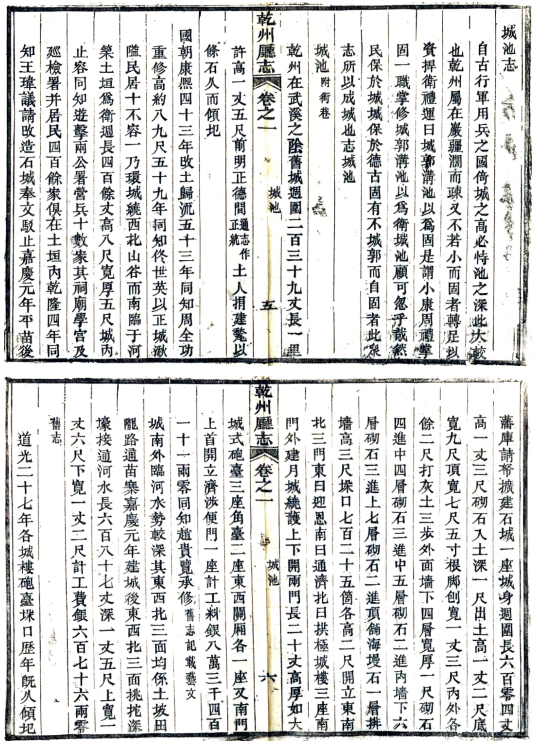 城池志
自古行軍用兵之國倚城之高必恃池之深此大較
也乾州屬在嚴疆濶而疎又不若小而固者轉足以
資捍衛禮運曰城郭溝池以為固是謂小康周禮掌
固一職掌修城郭溝池以為衛城池顧可忽乎哉然
民保於城城保於德古固有不城郭而自固者此泉
志所以成城也志城池
城池附街巷
乾州在武溪之陰舊城週圍二百三十九丈長一里
乾州廳志 卷之一 城池 五
許高一丈五尺前明正德間通志作正統土人捐建甃以
條石久而傾圮
國朝康熙四十三年改土歸流五十三年同知周全功
重修高約八九尺五十九年同知佟世英以正城湫
隘民居十不容一乃環城繞西北山谷而南臨于河
築土垣為衛週長四百餘丈高八尺寬厚五尺城內
止容同知遊擊兩公署營兵十數家其祠廟學宫及
廵檢署并居民四百餘家俱在土垣內乾隆四年同
知王瑋議請改造石城奉文駁止嘉慶元年平苗後
藩庫請帑擴建石城一座城身週圍長六百零四丈
高一丈三尺砌石入土深一尺出土高一丈二尺底
寬九尺頂寬七尺五寸根脚創寬一丈三尺內外各
餘二尺打灰土三步外面墻下四層寬厚一尺砌石
四進中四層砌石三進中五層砌石二進內墻下六
層砌石三進上七層砌石二進頂鋪海墁石一層排
墻高三尺垜口七百二十五箇各高二尺開立東南
北三門東曰迎恩南曰通濟北曰拱極城樓三座南
門外建月城繞護上下開兩門長二十丈高厚如大
乾州廳志 卷之一 城池 六
城式砲臺三座角臺二座東西關厢各一座又南門
上首開立濟渉便門一座計工料銀八萬三千四百
一十一兩零同知趙貴覽承修舊志記載藝文
城南外臨河水勢較深其東西北三面均係土坡田
隴路通苗寨嘉慶元年建城後東西北三面挑挖深
壕接通河水長六百八十七丈深一丈五尺上寬一
丈六尺下寬一丈二尺計工費銀六百七十六兩零
舊志
道光二十七年各城樓砲臺垜口歷年旣久傾圮